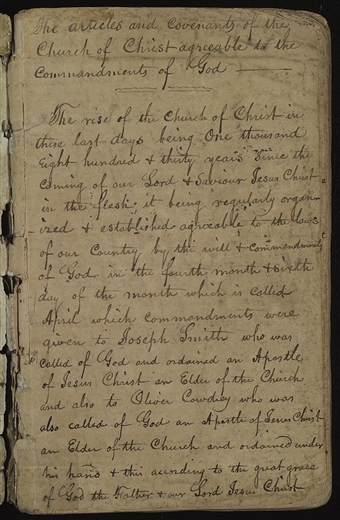 The articles and Covenants of the
Church of Christ agreeable to the
Commandments of God
The rise of the Church of Christ in
these last days being One thousand
Eight hundred & thirty years since the
coming of our Lord & Saviour Jesus Christ
in the flesh it being regularly organ
ized & established agreeable to the laws
of our Country by the will & commandments
of God in the fourth month & sixth
day of the month which is called
April which commandments were
given to Joseph Smith who was
called of God and ordained an Apostle
of Jesus Christ an Elder of the Church
and also to Oliver Cowdry who was
also called of God an Apostle of Jesus Christ
an Elder of the Church and ordained under
his hand & this according to the great grace
of God the Father & our Lord Jesus Christ